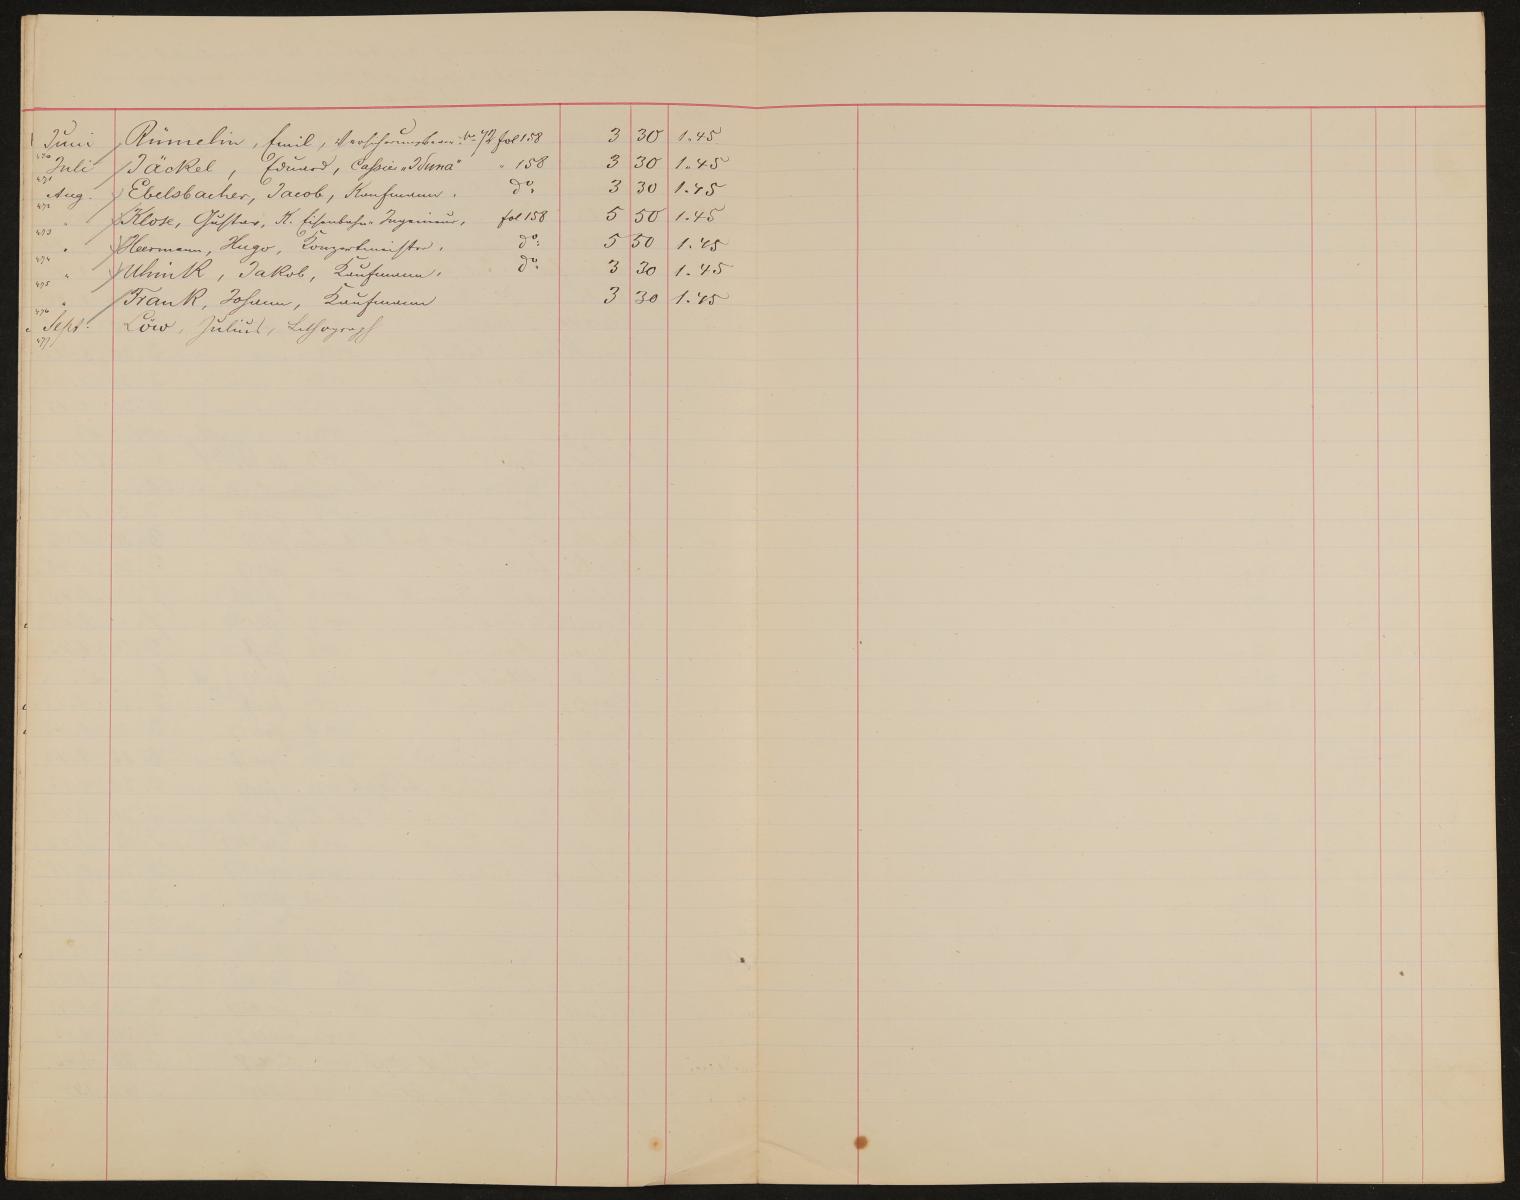 Juni Rümelin, Emil, fol 158 3 30 1.45
470
Juli Jäckel, Eduard, Cassier „Iduna" " 158 3 30 1.45
471
Aug. Ebelsbacher, Jacob, Kaufmann. do: 3 30 1.45
472
" Klose, Gustav, K. Eisenbahn-Ingenieur, fol 158 5 50 1.45
473
" Heermann, Hugo, Konzertmeister, do: 5 50 1.45
474
" Uhink, Jakob, Kaufmann, do: 3 30 1.45
475
" Frank, Johann, Kaufmann 3 30 1.45
476
Sept. Löw, Julius, Lithograph
477